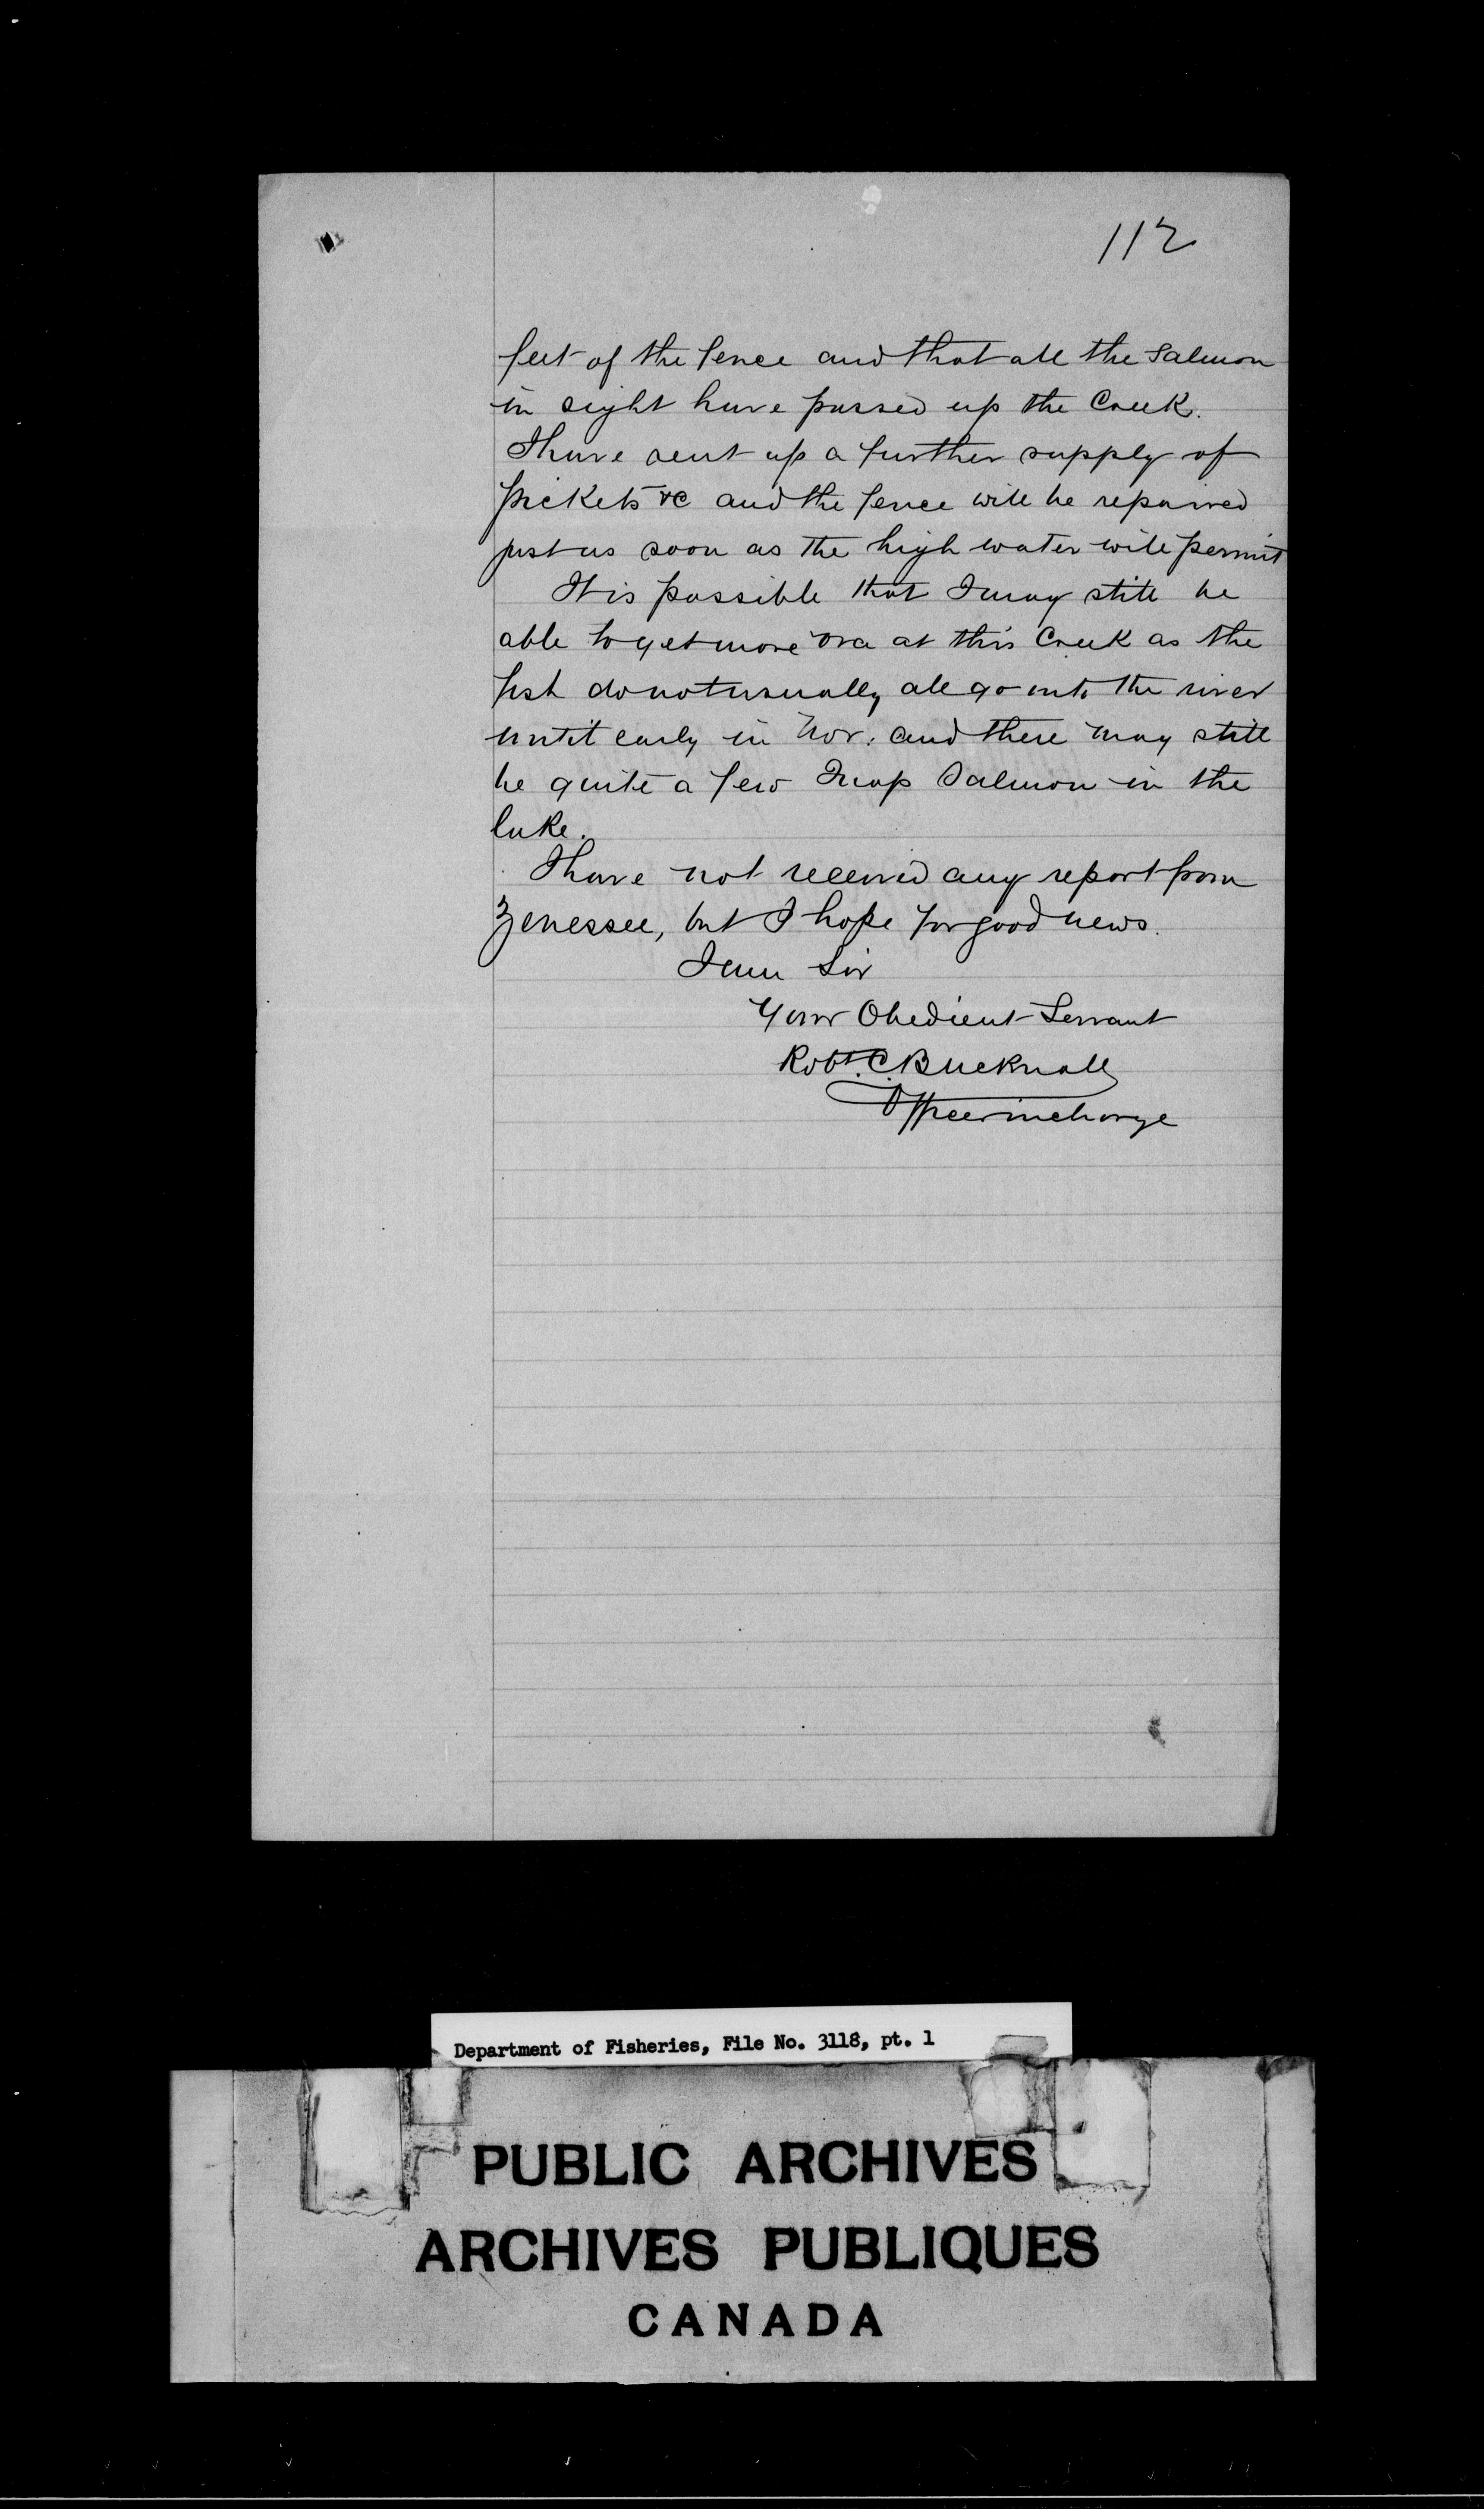 112
feet of the fence and that all the Salmon
in sight have passed up the Creek.
I have sent up a further supply of
pickets &c and the fence will be repaired
just as soon as the high water will permit
It is possible that I may still be
able to get more ova at this Creek as the
fish do not usually all go into the river
until early in Nov. and there may still
be quite a few Salmon in the
lake.
I have not received any report from
Zenessee, but I hope for good news.
I am Sir
Your Obedient Servant
Robt. C. Bucknall
Officer in charge
Department of Fisheries, File No. 3118, pt. 1
PUBLIC ARCHIVES
ARCHIVES PUBLIQUES
CANADA